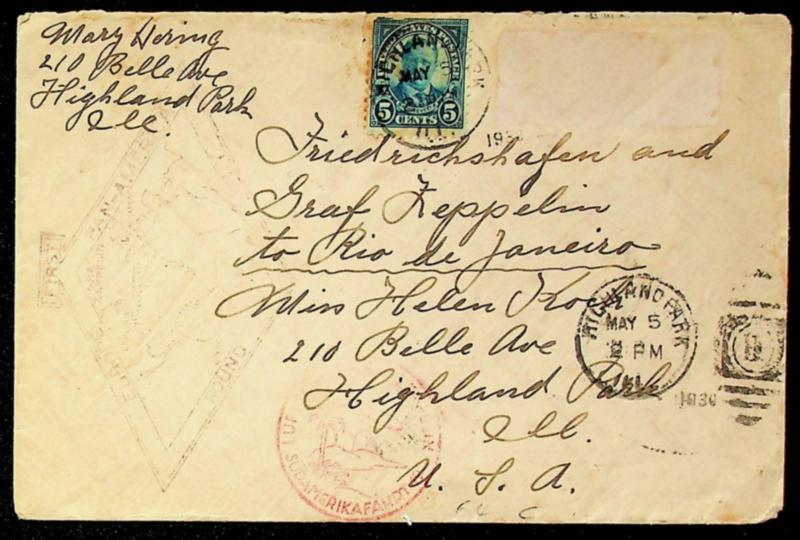 Mary Hering
210 Belle Ave
Highland Park
Ill.
5 CENTS 5
MAY
1930
Friedrichshafen and
Graf Zeppelin
to Rio de Janeiro
Miss Helen Koch
210 Belle Ave
Highland Park
Ill.
U. S. A.
HIGHLAND PARK
MAY 5
2 PM
ILL.
1930
FIRST
PAN-AMERICAN
ROUND
SÜDAMERIKAFAHRT